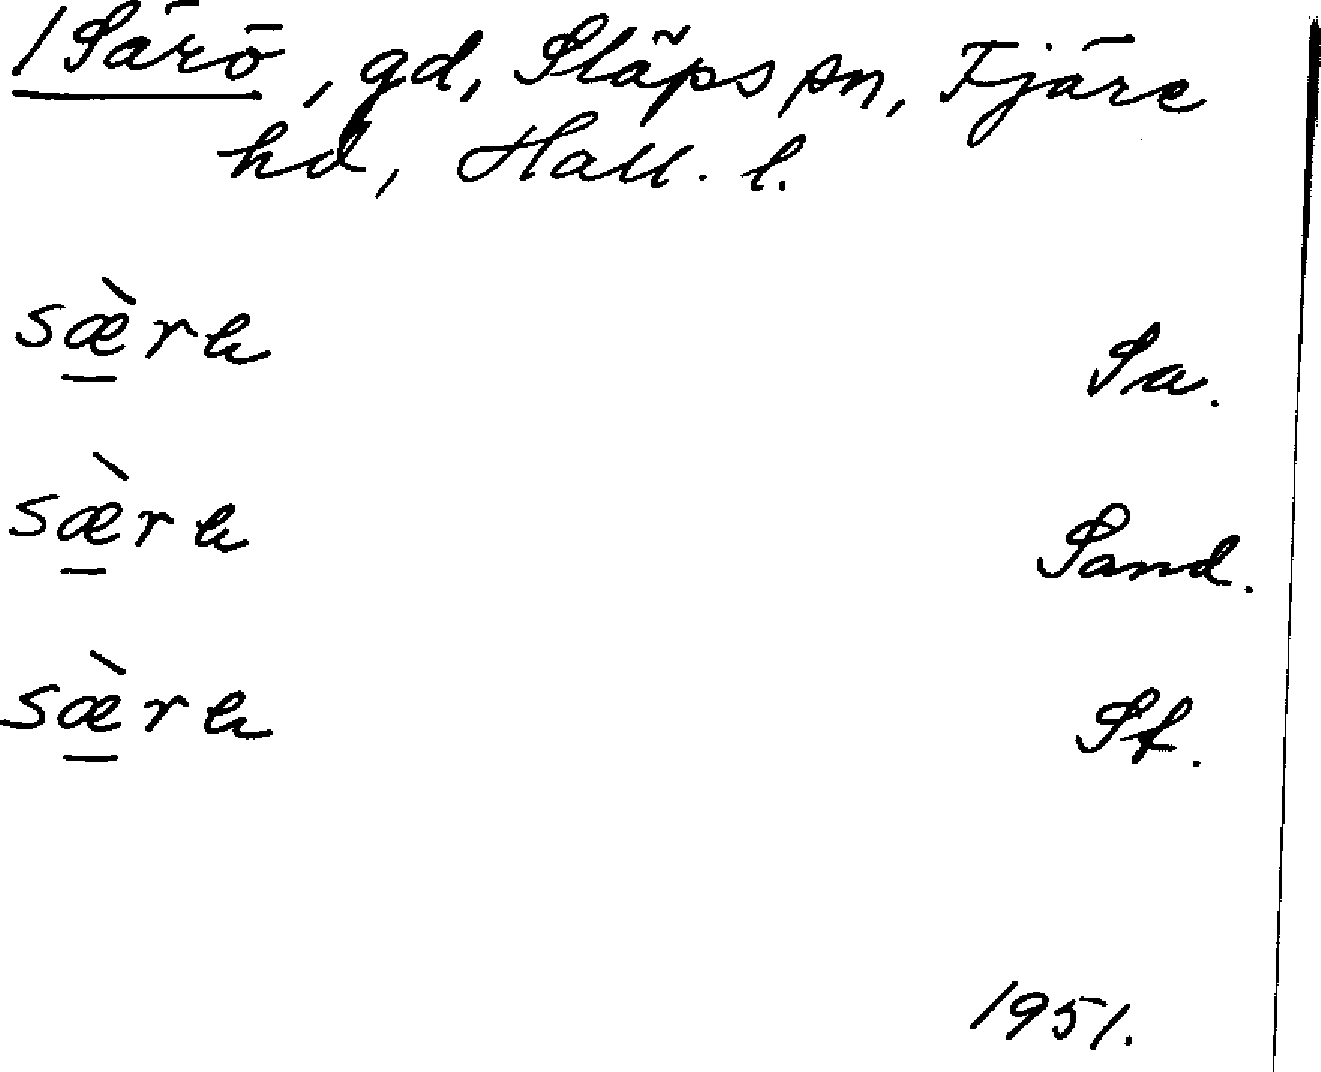 1 Särö, gd, Släps sn, Fjäre
hd, Hall. l.
sæ̀rə Sa.
sæ̀rə Sand.
sæ̀rə
1951.